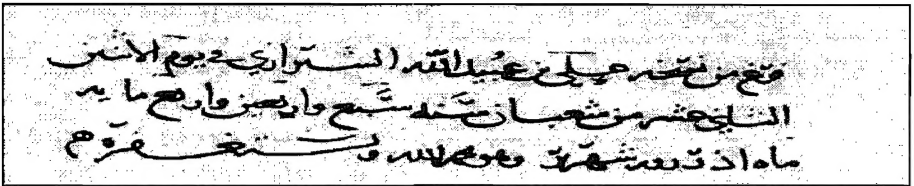 فرغ من نسخه علي بن عبيد الله الشيرازي في يوم الاثنين
الثاني عشر من شعبان سنة سبع واربعين واربع مايه
ماه وهو يحمد الله ويستغفره